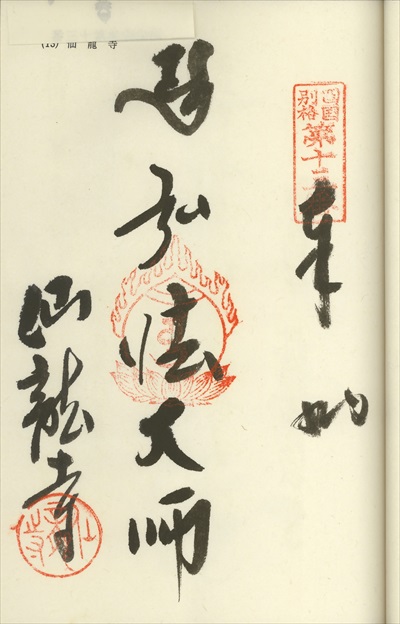 (13) 仙龍寺
四國
別格
第十三
奉納
弘法大師
仙龍寺